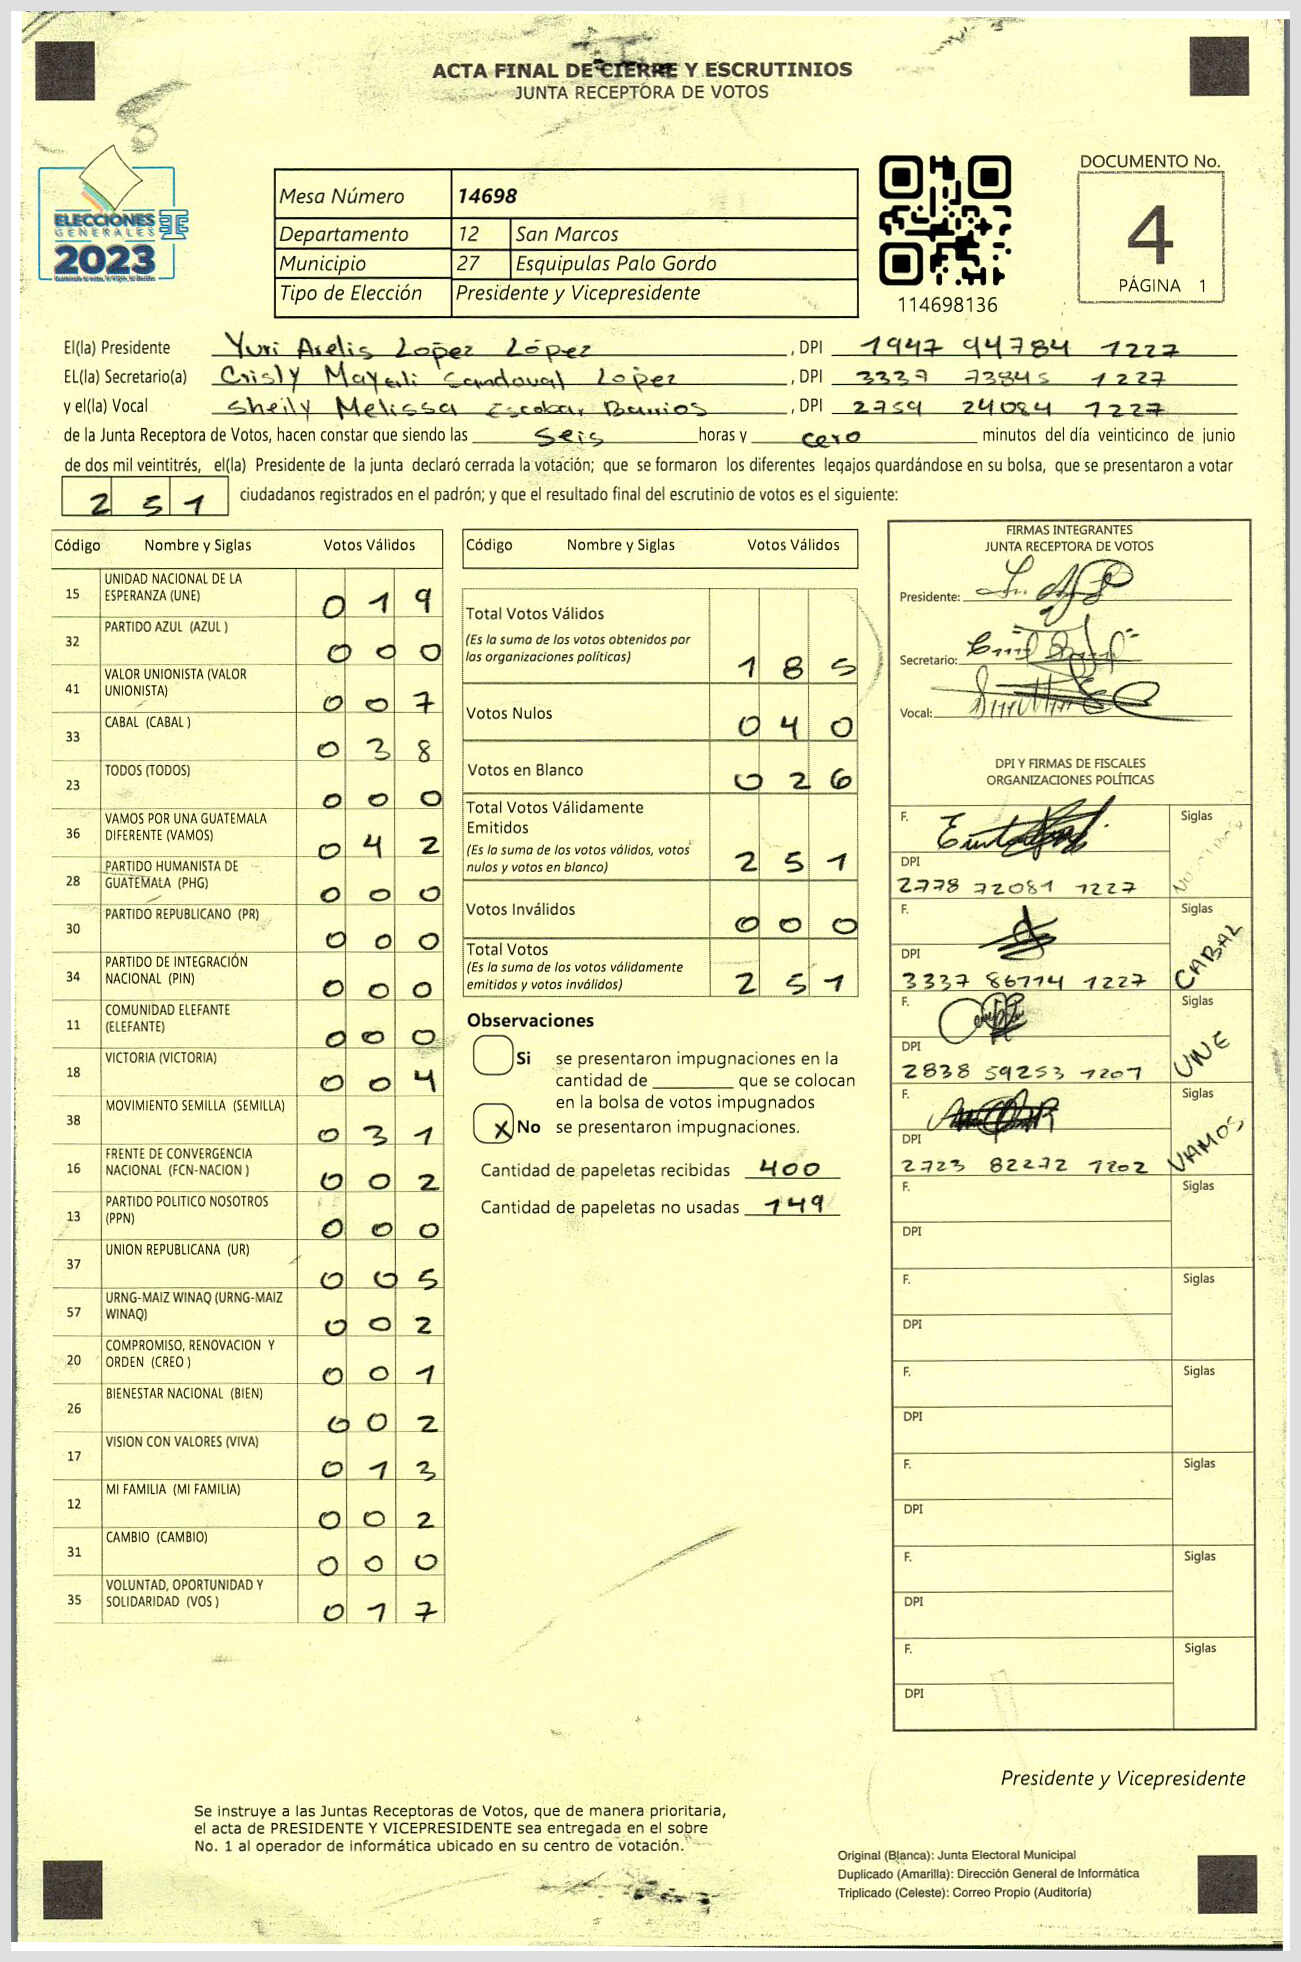 ACTA FINAL DE CIERRE Y ESCRUTINIOS
JUNTA RECEPTORA DE VOTOS
ELECCIONES
GENERALES
2023
Mesa Número 14698
Departamento 12 San Marcos
Municipio 27 Esquipulas Palo Gordo
Tipo de Elección Presidente y Vicepresidente
114698136
DOCUMENTO No.
4
PÁGINA 1
El(la) Presidente Yuri Arelis López López , DPI 1947 94784 1227
EL(la) Secretario(a) Crisly Mayerli Sandoval López , DPI 3337 73845 1227
y el(la) Vocal Sheily Melissa Escobar Barrios , DPI 2759 24084 1227
de la Junta Receptora de Votos, hacen constar que siendo las seis horas y cero minutos del día veinticinco de junio
de dos mil veintitrés, el(la) Presidente de la junta declaró cerrada la votación; que se formaron los diferentes legajos guardándose en su bolsa, que se presentaron a votar
251 ciudadanos registrados en el padrón; y que el resultado final del escrutinio de votos es el siguiente:
Código Nombre y Siglas Votos Válidos
15 UNIDAD NACIONAL DE LA ESPERANZA (UNE) 019
32 PARTIDO AZUL (AZUL ) 000
41 VALOR UNIONISTA (VALOR UNIONISTA) 007
33 CABAL (CABAL ) 038
23 TODOS (TODOS) 000
36 VAMOS POR UNA GUATEMALA DIFERENTE (VAMOS) 042
28 PARTIDO HUMANISTA DE GUATEMALA (PHG) 000
30 PARTIDO REPUBLICANO (PR) 000
34 PARTIDO DE INTEGRACIÓN NACIONAL (PIN) 000
11 COMUNIDAD ELEFANTE (ELEFANTE) 000
18 VICTORIA (VICTORIA) 004
38 MOVIMIENTO SEMILLA (SEMILLA) 031
16 FRENTE DE CONVERGENCIA NACIONAL (FCN-NACION ) 002
13 PARTIDO POLITICO NOSOTROS (PPN) 000
37 UNION REPUBLICANA (UR) 005
57 URNG-MAIZ WINAQ (URNG-MAIZ WINAQ) 002
20 COMPROMISO, RENOVACION Y ORDEN (CREO ) 001
26 BIENESTAR NACIONAL (BIEN) 002
17 VISION CON VALORES (VIVA) 013
12 MI FAMILIA (MI FAMILIA) 002
31 CAMBIO (CAMBIO) 000
35 VOLUNTAD, OPORTUNIDAD Y SOLIDARIDAD (VOS ) 017
Código Nombre y Siglas Votos Válidos
Total Votos Válidos
(Es la suma de los votos obtenidos por
las organizaciones políticas) 185
Votos Nulos 040
Votos en Blanco 026
Total Votos Válidamente
Emitidos
(Es la suma de los votos válidos, votos
nulos y votos en blanco) 251
Votos Inválidos 000
Total Votos
(Es la suma de los votos válidamente
emitidos y votos inválidos) 251
Observaciones
Si se presentaron impugnaciones en la
cantidad de ________ que se colocan
en la bolsa de votos impugnados
X No se presentaron impugnaciones.
Cantidad de papeletas recibidas 400
Cantidad de papeletas no usadas 149
FIRMAS INTEGRANTES
JUNTA RECEPTORA DE VOTOS
Presidente:
Secretario:
Vocal:
DPI Y FIRMAS DE FISCALES
ORGANIZACIONES POLÍTICAS
F. Siglas
DPI
2778 72081 1227
F. Siglas CABAL
DPI
3337 86714 1227
F. Siglas UNE
DPI
2838 59253 1207
F. Siglas VAMOS
DPI
2723 82272 1202
F. Siglas
DPI
F. Siglas
DPI
F. Siglas
DPI
F. Siglas
DPI
F. Siglas
DPI
F. Siglas
DPI
Presidente y Vicepresidente
Se instruye a las Juntas Receptoras de Votos, que de manera prioritaria,
el acta de PRESIDENTE Y VICEPRESIDENTE sea entregada en el sobre
No. 1 al operador de informática ubicado en su centro de votación.
Original (Blanca): Junta Electoral Municipal
Duplicado (Amarilla): Dirección General de Informática
Triplicado (Celeste): Correo Propio (Auditoría)